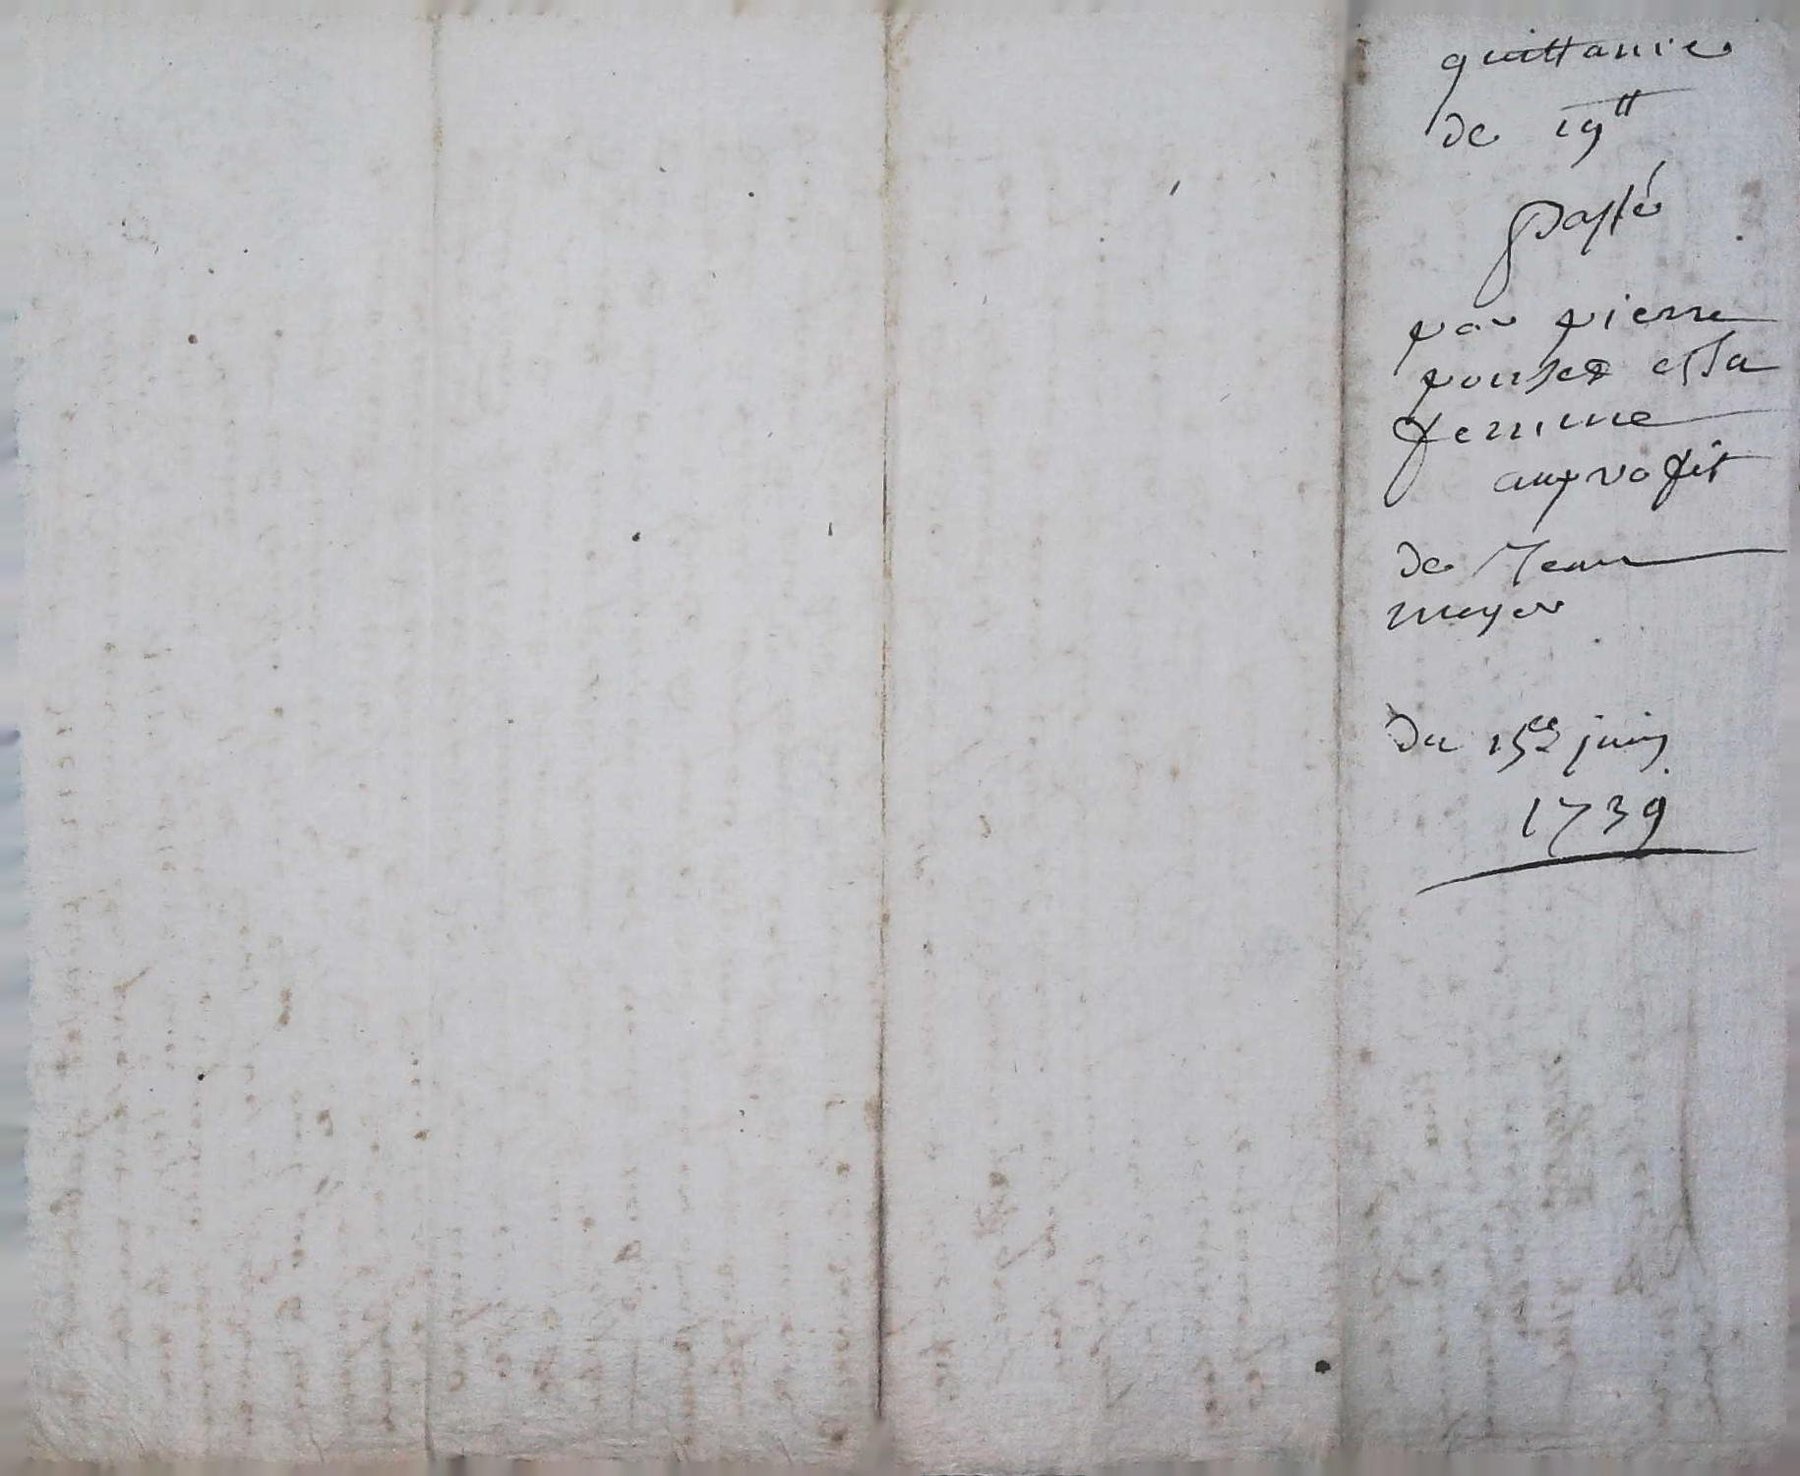 quittance
de 19tt
passé
par pierre
pouset et sa
femme
au profit
de Jean
moyer
Du 15e juin
1739